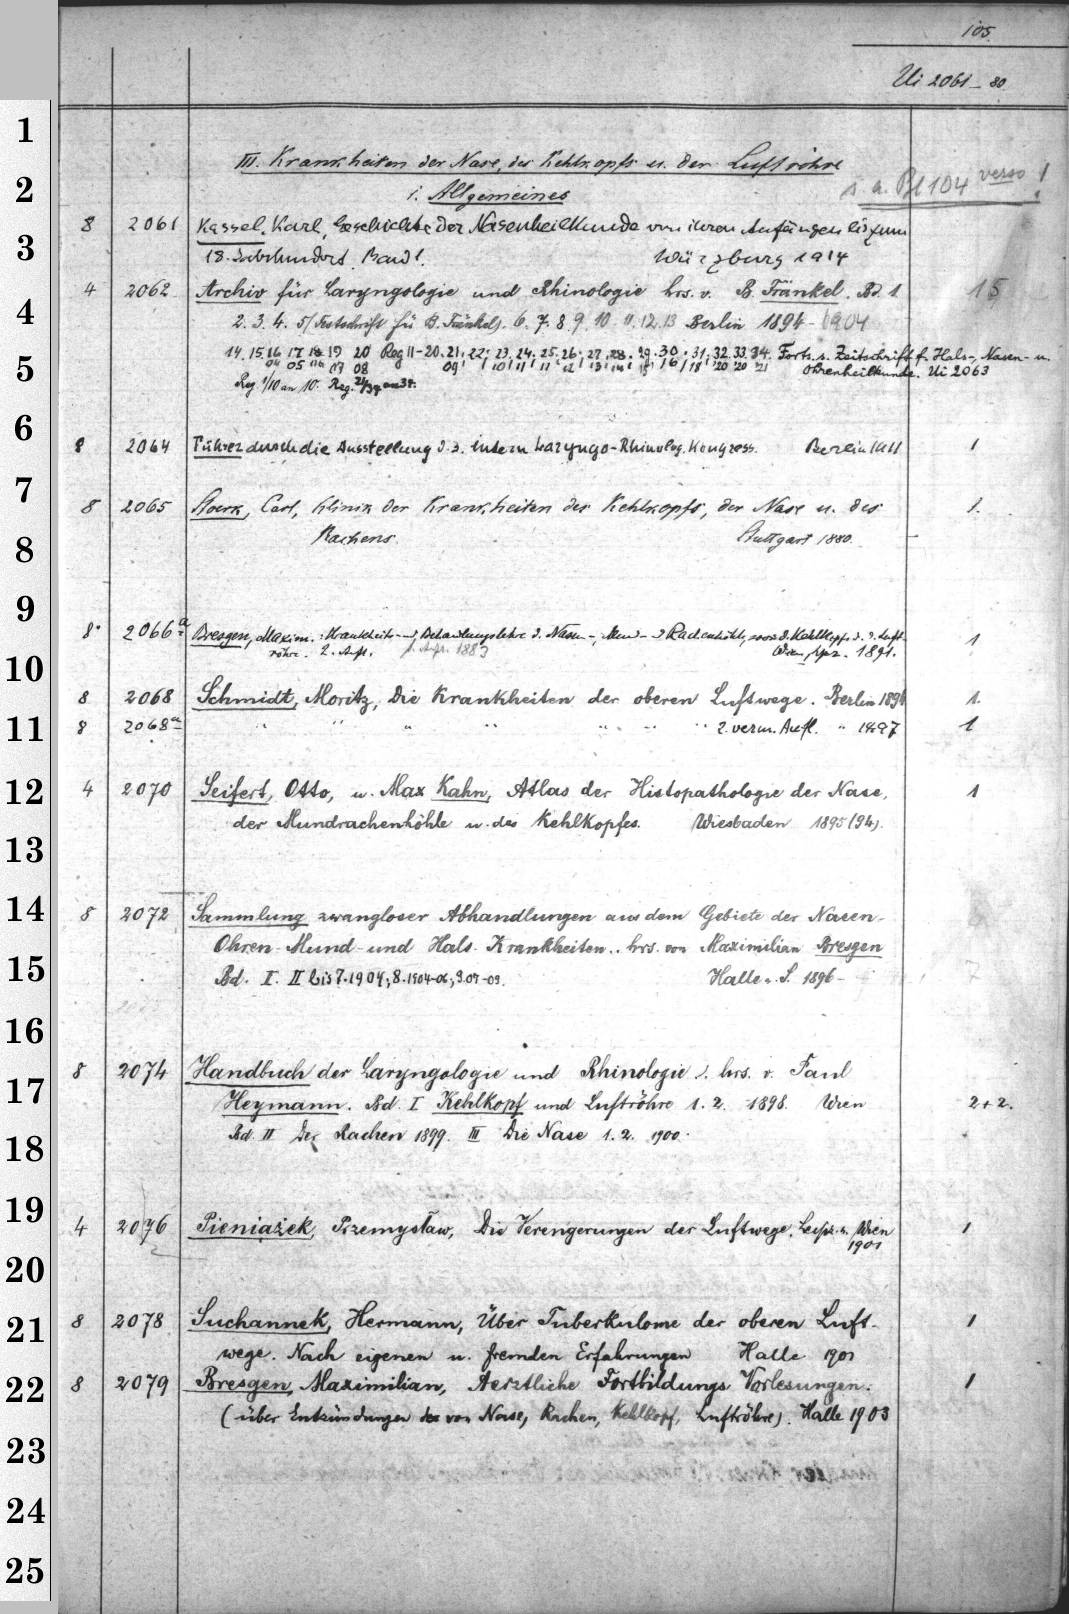 105.
Ui 2061-80
1
III. Krankheiten der Nase, des Kehlkopfs u. der Luftröhre
2
1. Allgemeines
s. a. Bl 104 verso !
8 2061 Kassel, Karl, Geschichte der Nasenheilkunde von ihren Anfängen bis zum
3
18. Jahrhundert. Band 1. Würzburg 1914
4 2062 Archiv für Laryngologie und Rhinologie hrs. v. B. Fränkel. Bd. 1 15
4
2. 3. 4. 5 (Festschrift für B. Fränkel). 6. 7. 8. 9. 10. 11. 12. 13 Berlin 1894-1904
14. 15. 16 17 18 19 20 Reg 11-20. 21. 22. 23. 24. 25. 26. 27. 28. 29. 30. 31. 32. 33. 34. Forts. s. Zeitschrift f. Hals-, Nasen- u.
5
04 05 06 07 08 09 10 11 11 12 13 14 15 16 18 20 20 21 Ohrenheilkunde. Ui 2063
Reg 1/10 an 10. Reg. 21/34 an 34.
6
8 2064 Führer durch die Ausstellung d. 3. intern Laryngo-Rhinolog. Kongress. Berlin 1911 1
7
8 2065 Stoerk, Carl, Klinik der Krankheiten des Kehlkopfs, der Nase u. des 1.
8
Rachens. Stuttgart 1880.
9
8° 2066a Bresgen, Maxim.: Krankheits- u. Behandlungslehre d. Nasen-, Mund- u. Rachenhöhle, sowie d. Kehlkopfs u. d. Luft- 1
röhre. 2. Aufl. 1. Aufl. 1883 Wien, Lpz. 1891.
10
8 2068 Schmidt, Moritz, Die Krankheiten der oberen Luftwege. Berlin 1894 1.
11
8 2068a " " " " " " " 2. verm. Aufl. " 1897 1
12
4 2070 Seifert, Otto, u. Max Kahn, Atlas der Histopathologie der Nase, 1
der Mundrachenhöhle u. des Kehlkopfes. Wiesbaden 1895 (94).
13
14
8 2072 Sammlung zwangloser Abhandlungen aus dem Gebiete der Nasen-
Ohren- Mund- und Hals- Krankheiten.. hrs. von Maximilian Bresgen
15
Bd. I. II bis 7. 1904; 8. 1904-06; 9. 07-09. Halle a. S. 1896-
16
8 2074 Handbuch der Laryngologie und Rhinologie. hrs. v. Paul
17
Heymann. Bd. I Kehlkopf und Luftröhre 1. 2. 1898. Wien 2+2.
Bd. II Der Rachen 1899. III Die Nase 1. 2. 1900.
18
19
4 2076 Pieniążek, Przemysław, Die Verengerungen der Luftwege. Leipz. u. Wien 1
1901
20
21
8 2078 Suchannek, Hermann, Über Tuberkulome der oberen Luft- 1
wege. Nach eigenen u. fremden Erfahrungen Halle 1901
22
8 2079 Bresgen, Maximilian, Aerztliche Fortbildungs Vorlesungen. 1
(über Entzündungen der von Nase, Rachen, Kehlkopf, Luftröhre). Halle 1903
23
24
25